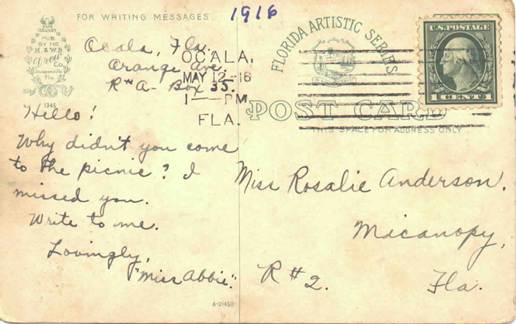 FOR WRITING MESSAGES
1916
PUB.
BY THE
H. & W. B.
DREW
Co.
1346
Ocala, Fla.
Orange Ave.
R#A- Box 35.
OCALA,
MAY 12-16
1-PM
FLA.
FLORIDA ARTISTIC SERIES
POST CARD
THIS SPACE FOR ADDRESS ONLY
U.S. POSTAGE
1 CENT 1
Hello!
Why didn't you come
to the picnic? I
missed you.
Write to me.
Lovingly,
"Miss Abbie".
Miss Rosalie Anderson.
Micanopy,
R#2. Fla.